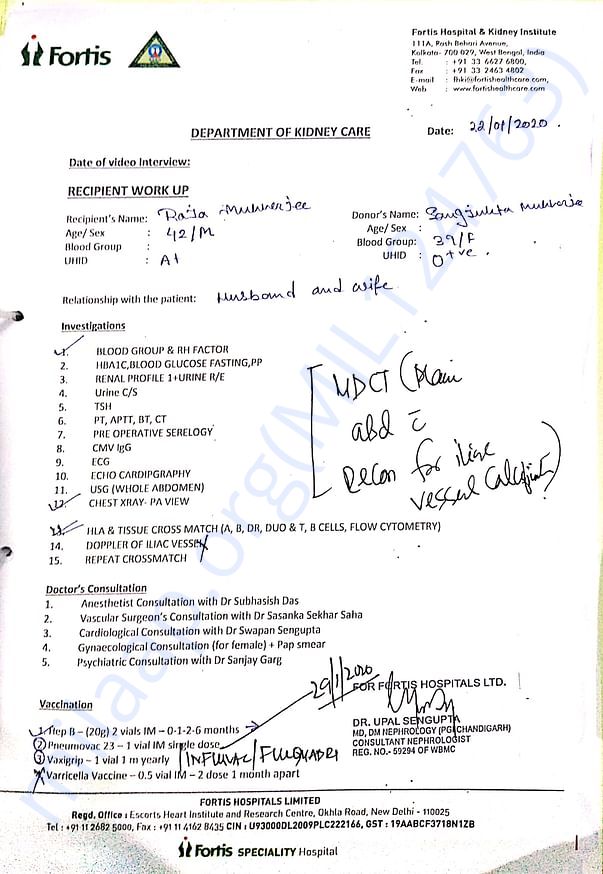 Fortis
Fortis Hospital & Kidney Institute
111A, Rash Behari Avenue,
Kolkata- 700 029, West Bengal, India
Tel. : +91 33 6627 6800,
Fax : +91 33 2463 4802
E-mail : fhki@fortishealthcare.com,
Web : www.fortishealthcare.com
DEPARTMENT OF KIDNEY CARE
Date: 22/01/2020.
Date of video Interview:
RECIPIENT WORK UP
Recipient's Name: Raja Mukherjee
Age/ Sex : 42/M
Blood Group :
UHID : A1
Donor's Name: Sangjukta Mukherjee
Age/ Sex :
Blood Group: 39/F
UHID : O+ve.
Relationship with the patient: Husband and wife
Investigations
1. BLOOD GROUP & RH FACTOR
2. HBA1C,BLOOD GLUCOSE FASTING,PP
3. RENAL PROFILE 1+URINE R/E
4. Urine C/S
5. TSH
6. PT, APTT, BT, CT
7. PRE OPERATIVE SERELOGY
8. CMV IgG
9. ECG
10. ECHO CARDIPGRAPHY
11. USG (WHOLE ABDOMEN)
12. CHEST XRAY- PA VIEW
13. HLA & TISSUE CROSS MATCH (A, B, DR, DUO & T, B CELLS, FLOW CYTOMETRY)
14. DOPPLER OF ILIAC VESSEL
15. REPEAT CROSSMATCH
MDCT (Plain
abd c̄
Recon for iliac
vessel Calcification)
Doctor's Consultation
1. Anesthetist Consultation with Dr Subhasish Das
2. Vascular Surgeon's Consultation with Dr Sasanka Sekhar Saha
3. Cardiological Consultation with Dr Swapan Sengupta
4. Gynaecological Consultation (for female) + Pap smear
5. Psychiatric Consultation with Dr Sanjay Garg
29/1/2020
FOR FORTIS HOSPITALS LTD.
DR. UPAL SENGUPTA
MD, DM NEPHROLOGY (PGI CHANDIGARH)
CONSULTANT NEPHROLOGIST
REG. NO.- 59294 OF WBMC
Vaccination
1. Hep B – (20g) 2 vials IM – 0-1-2-6 months
2 Pneumovac 23 – 1 vial IM single dose
3 Vaxigrip – 1 vial 1 m yearly INFLUVAC/FLUQUADRI
Varricella Vaccine – 0.5 vial IM – 2 dose 1 month apart
FORTIS HOSPITALS LIMITED
Regd. Office : Escorts Heart Institute and Research Centre, Okhla Road, New Delhi - 110025
Tel : +91 11 2682 5000, Fax : +91 11 4162 8435 CIN : U93000DL2009PLC222166, GST : 19AABCF3718N1ZB
Fortis SPECIALITY Hospital
milaap.org(MIL124763)